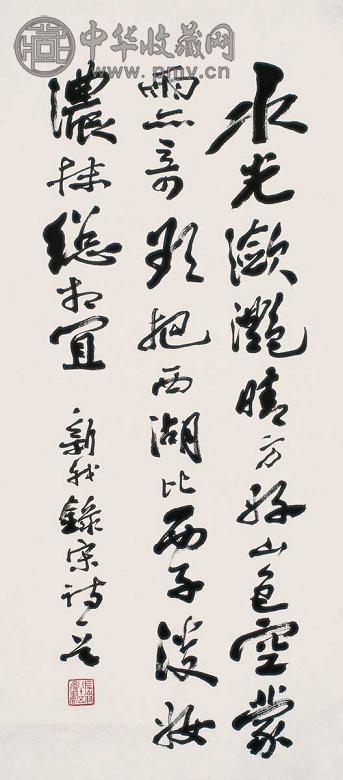 中华收藏网
www.pmv.cn
水光瀲灩晴方好山色空蒙
雨亦奇欲把西湖比西子淡妝
濃抹總相宜
新我錄宋詩一首